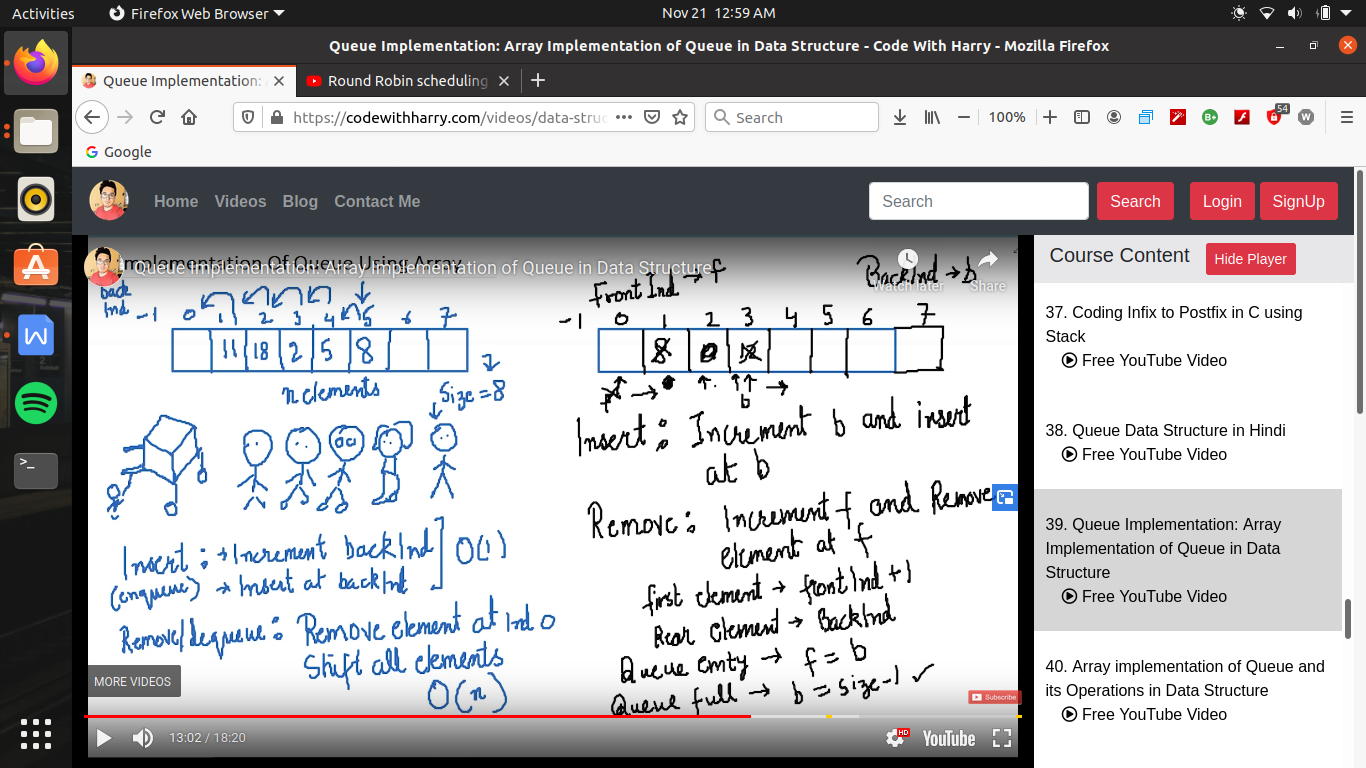 Activities
Firefox Web Browser
Nov 21 12:59 AM
Queue Implementation: Array Implementation of Queue in Data Structure - Code With Harry - Mozilla Firefox
Queue Implementation:
Round Robin scheduling
https://codewithharry.com/videos/data-struc
Search
100%
54
Google
Home Videos Blog Contact Me
Search
Search
Login
SignUp
Implementation Of Queue Using Array
Queue Implementation: Array Implementation of Queue in Data Structure
Watch later
Share
back
Ind -1 0 1 2 3 4 5 6 7
11 18 2 5 8
n elements
Size = 8
Insert : → Increment backInd
(enqueue) → Insert at backInd
O(1)
Remove/dequeue : Remove element at Ind 0
Shift all elements
O(n)
FrontInd → f
BackInd → b
-1 0 1 2 3 4 5 6 7
8
f
b
Insert : Increment b and insert
at b
Remove : Increment f and Remove
element at f
first element → frontInd + 1
Rear Element → BackInd
Queue emty → f = b
Queue full → b = size - 1
MORE VIDEOS
Subscribe
13:02 / 18:20
HD
YouTube
Course Content
Hide Player
37. Coding Infix to Postfix in C using
Stack
Free YouTube Video
38. Queue Data Structure in Hindi
Free YouTube Video
39. Queue Implementation: Array
Implementation of Queue in Data
Structure
Free YouTube Video
40. Array implementation of Queue and
its Operations in Data Structure
Free YouTube Video